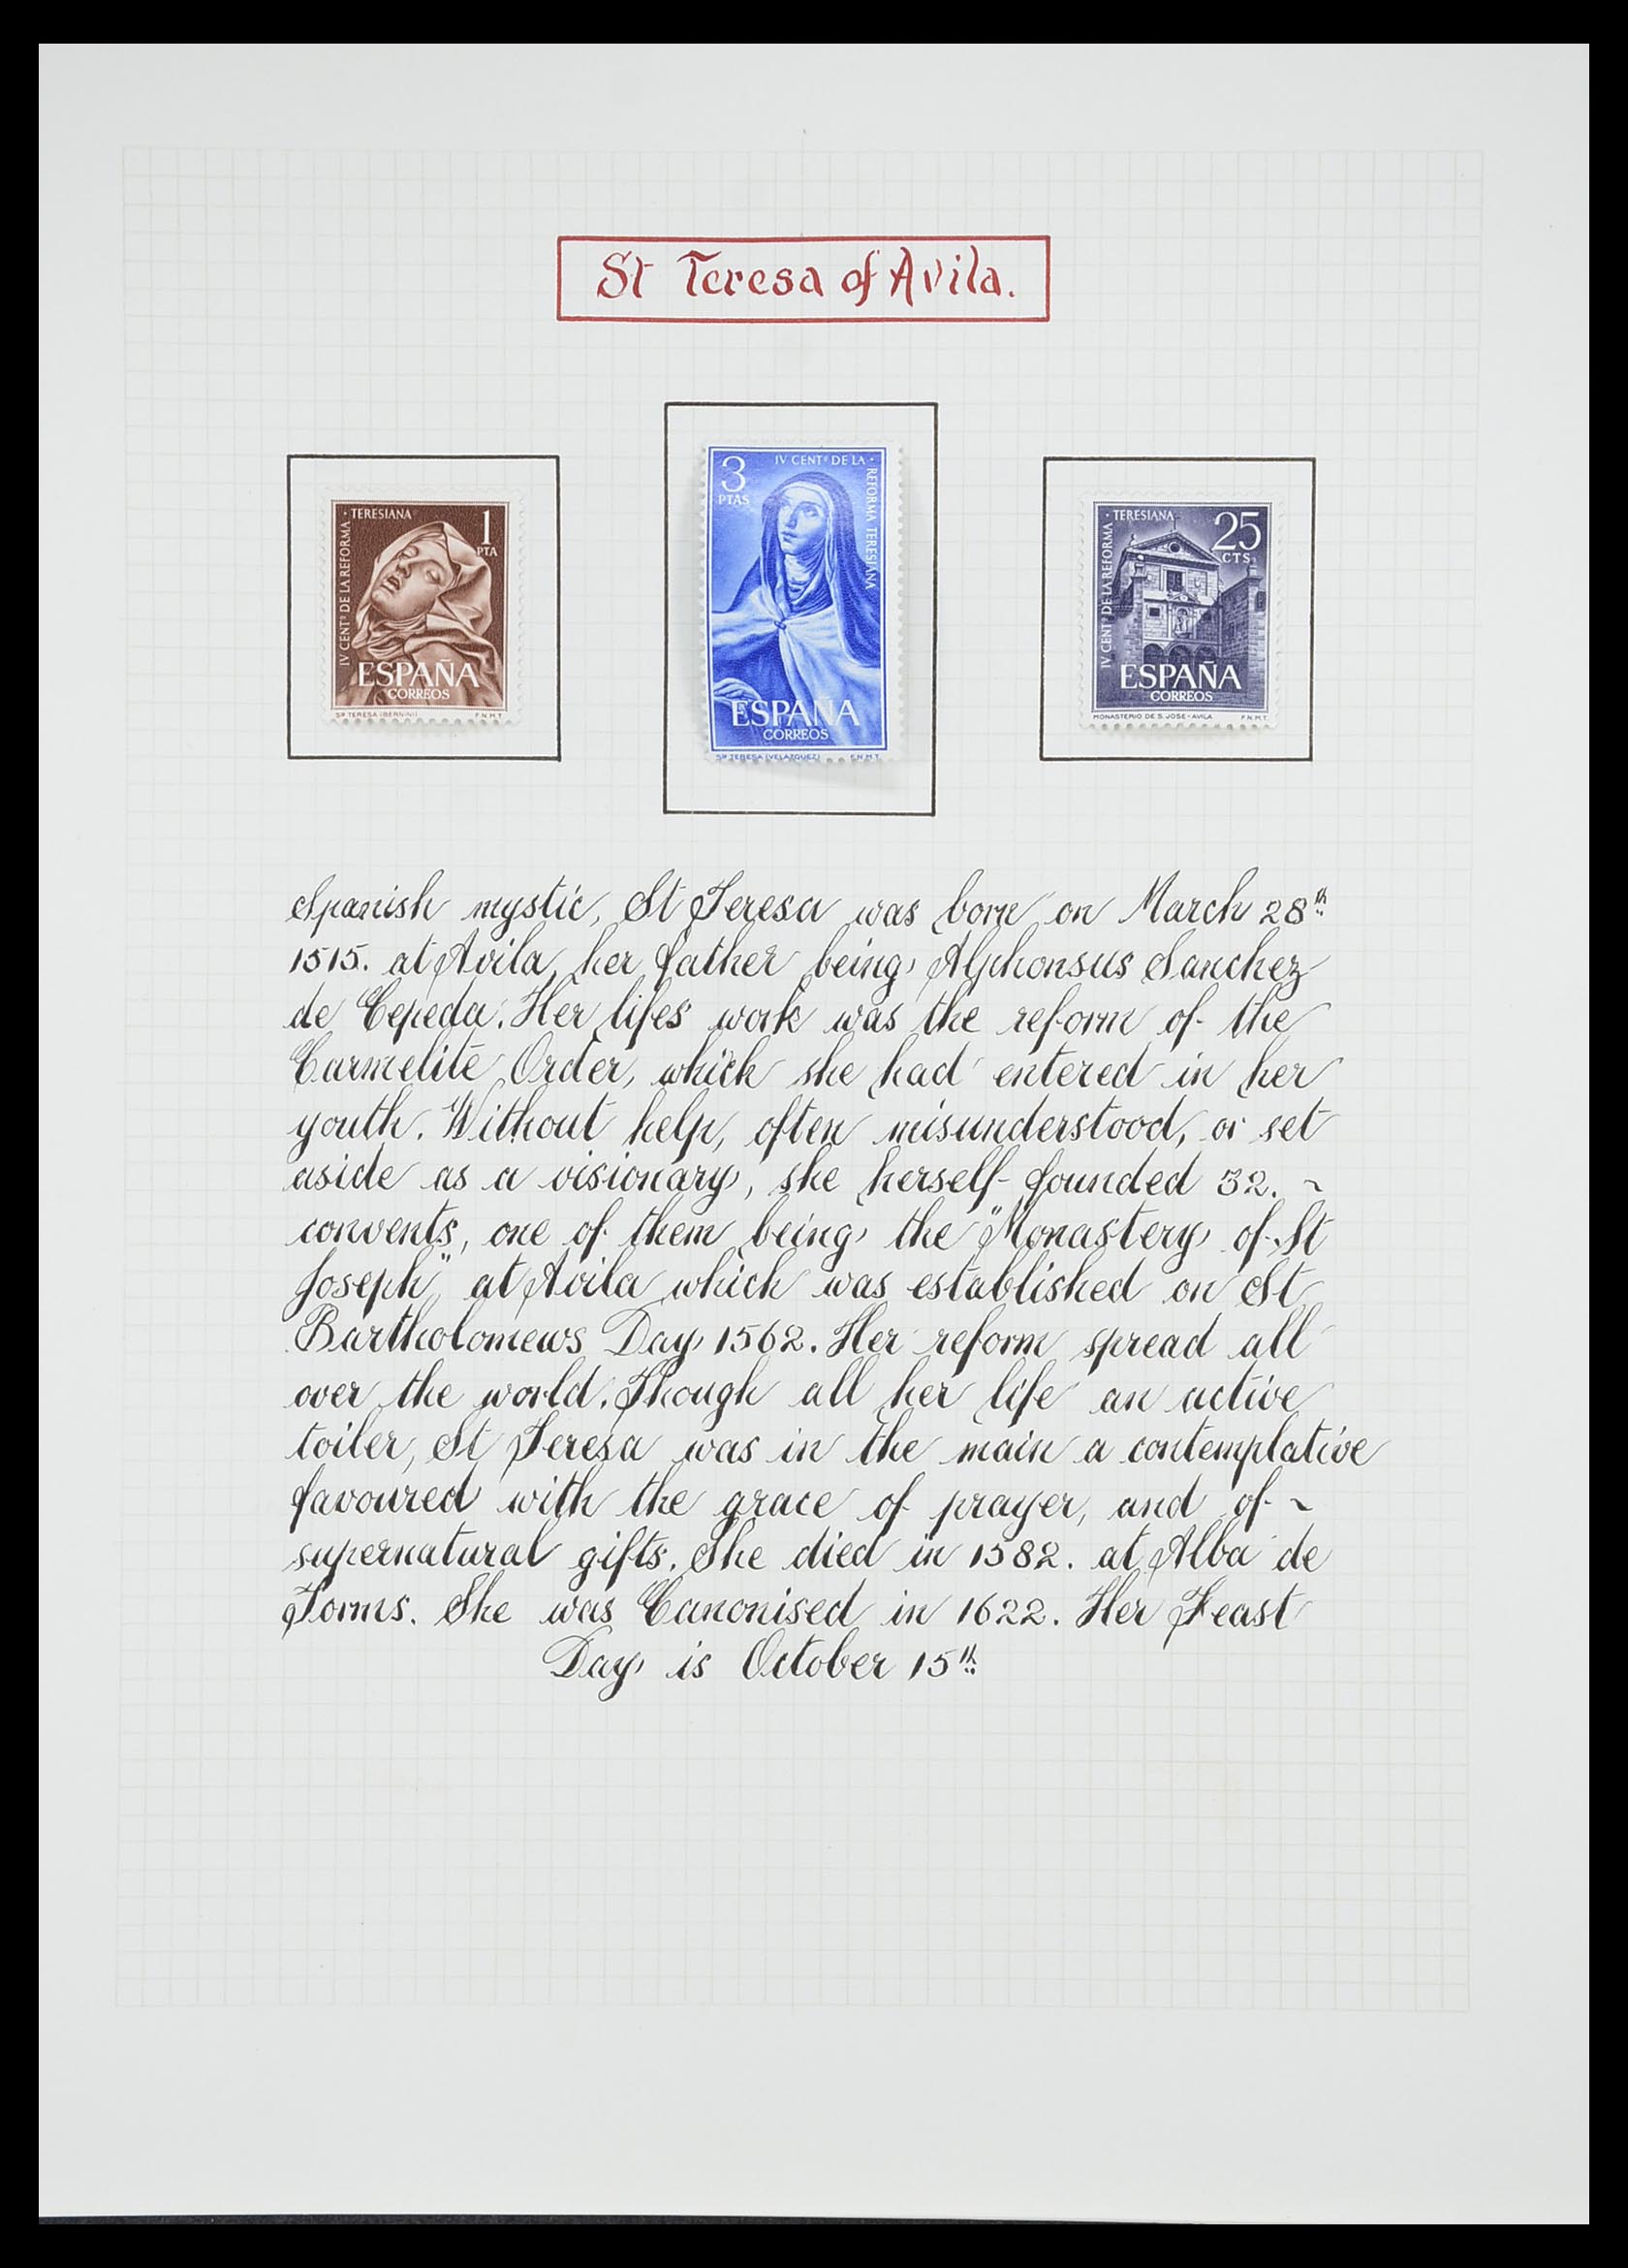 St Teresa of Avila.
· TERESIANA
1
PTA
IV CENTº DE LA REFORMA
ESPAÑA
CORREOS
STA TERESA (BERNINI) F.N.M.T.
3
PTAS
IV CENTº DE LA ·
REFORMA TERESIANA
ESPAÑA
CORREOS
STA TERESA (VELAZQUEZ) F.N.M.T.
· TERESIANA
25
CTS
IV CENTº DE LA REFORMA
ESPAÑA
CORREOS
MONASTERIO DE S. JOSE - AVILA F.N.M.T.
Spanish mystic, St Teresa was born on March 28th
1515. at Avila, her father being Alphonsus Sanchez
de Cepeda. Her lifes work was the reform of the
Carmelite Order, which she had entered in her
youth. Without help, often misunderstood, or set
aside as a visionary, she herself founded 32. ~
convents, one of them being the "Monastery of St
Joseph" at Avila which was established on St
Bartholomews Day 1562. Her reform spread all
over the world. Though all her life an active
toiler, St Teresa was in the main a contemplative
favoured with the grace of prayer, and of ~
supernatural gifts. She died in 1582. at Alba de
Torms. She was Canonised in 1622. Her Feast
Day is October 15th